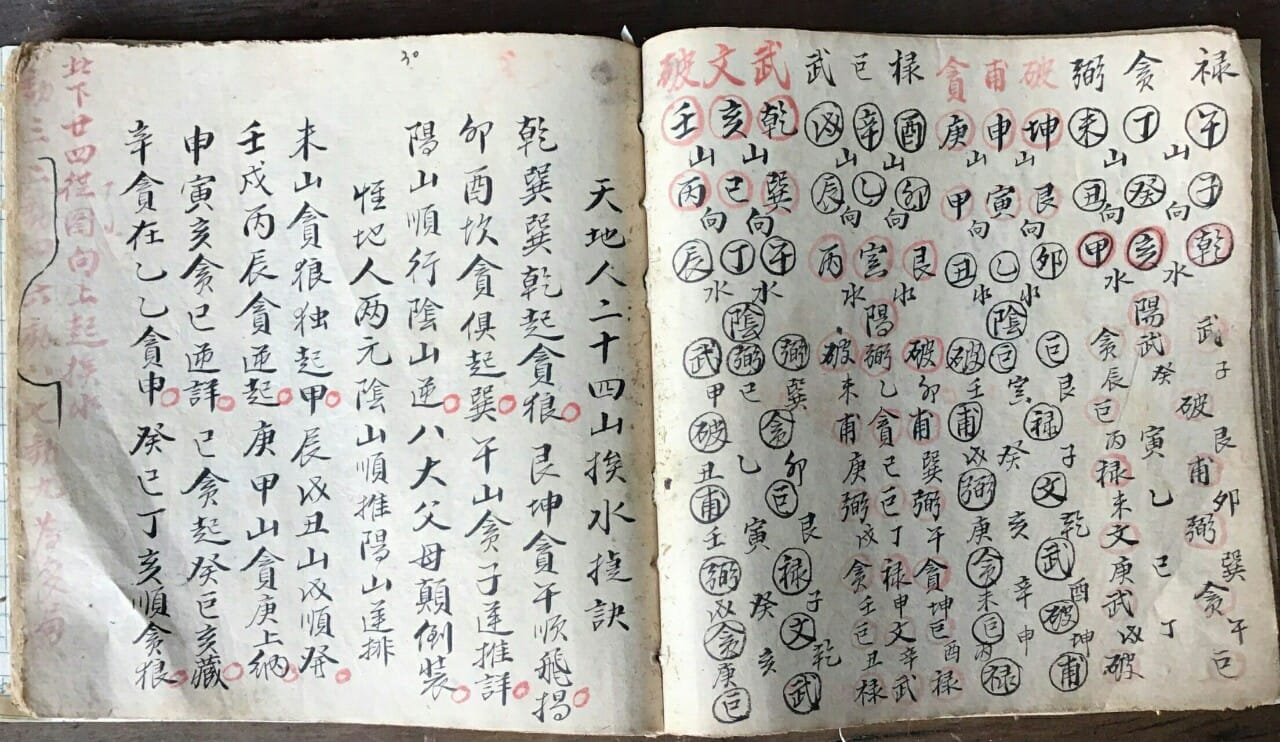 禄午山子向乾水武子破艮甫卯弼巽貪午巨
貪丁癸亥陽武癸寅乙巳丁
弼未山丑向甲水貪辰巨丙禄未文庚武戌破
破坤山艮向卯水巨艮禄子文乾武酉破坤甫
甫申寅乙陰巨寅癸亥辛申
貪庚山甲向丑水破壬甫戌弼庚貪未巨丙禄
禄酉山卯向艮水破卯甫巽弼午貪坤巨酉禄
巨辛乙寅陽弼乙貪己巨丁禄申文辛武
武戌山辰向丙水破未甫庚弼戌貪壬巨丑禄
武乾山巽向午水弼巽貪卯巨艮禄子文乾武
文亥巳丁陰弼巳乙寅癸亥
破壬山丙向辰水武甲破丑甫壬弼戌貪庚巨
天地人二十四山挨水捷訣
乾巽巽乾起貪狼 艮坤貪午順飛揚
卯酉坎貪俱起巽 午山貪子逆推詳
陽山順行陰山逆 八大父母顛倒裝
惟地人两元陰山順推陽山逆排
未山貪狼独起甲 辰戌丑山戌順發
壬戍丙辰貪逆起 庚甲山貪庚上納
申寅亥貪巳逆詳 巳貪起癸巨亥藏
辛貪在乙乙貪申 癸巳丁亥順貪狼
此下廿四從圖向上起挨水